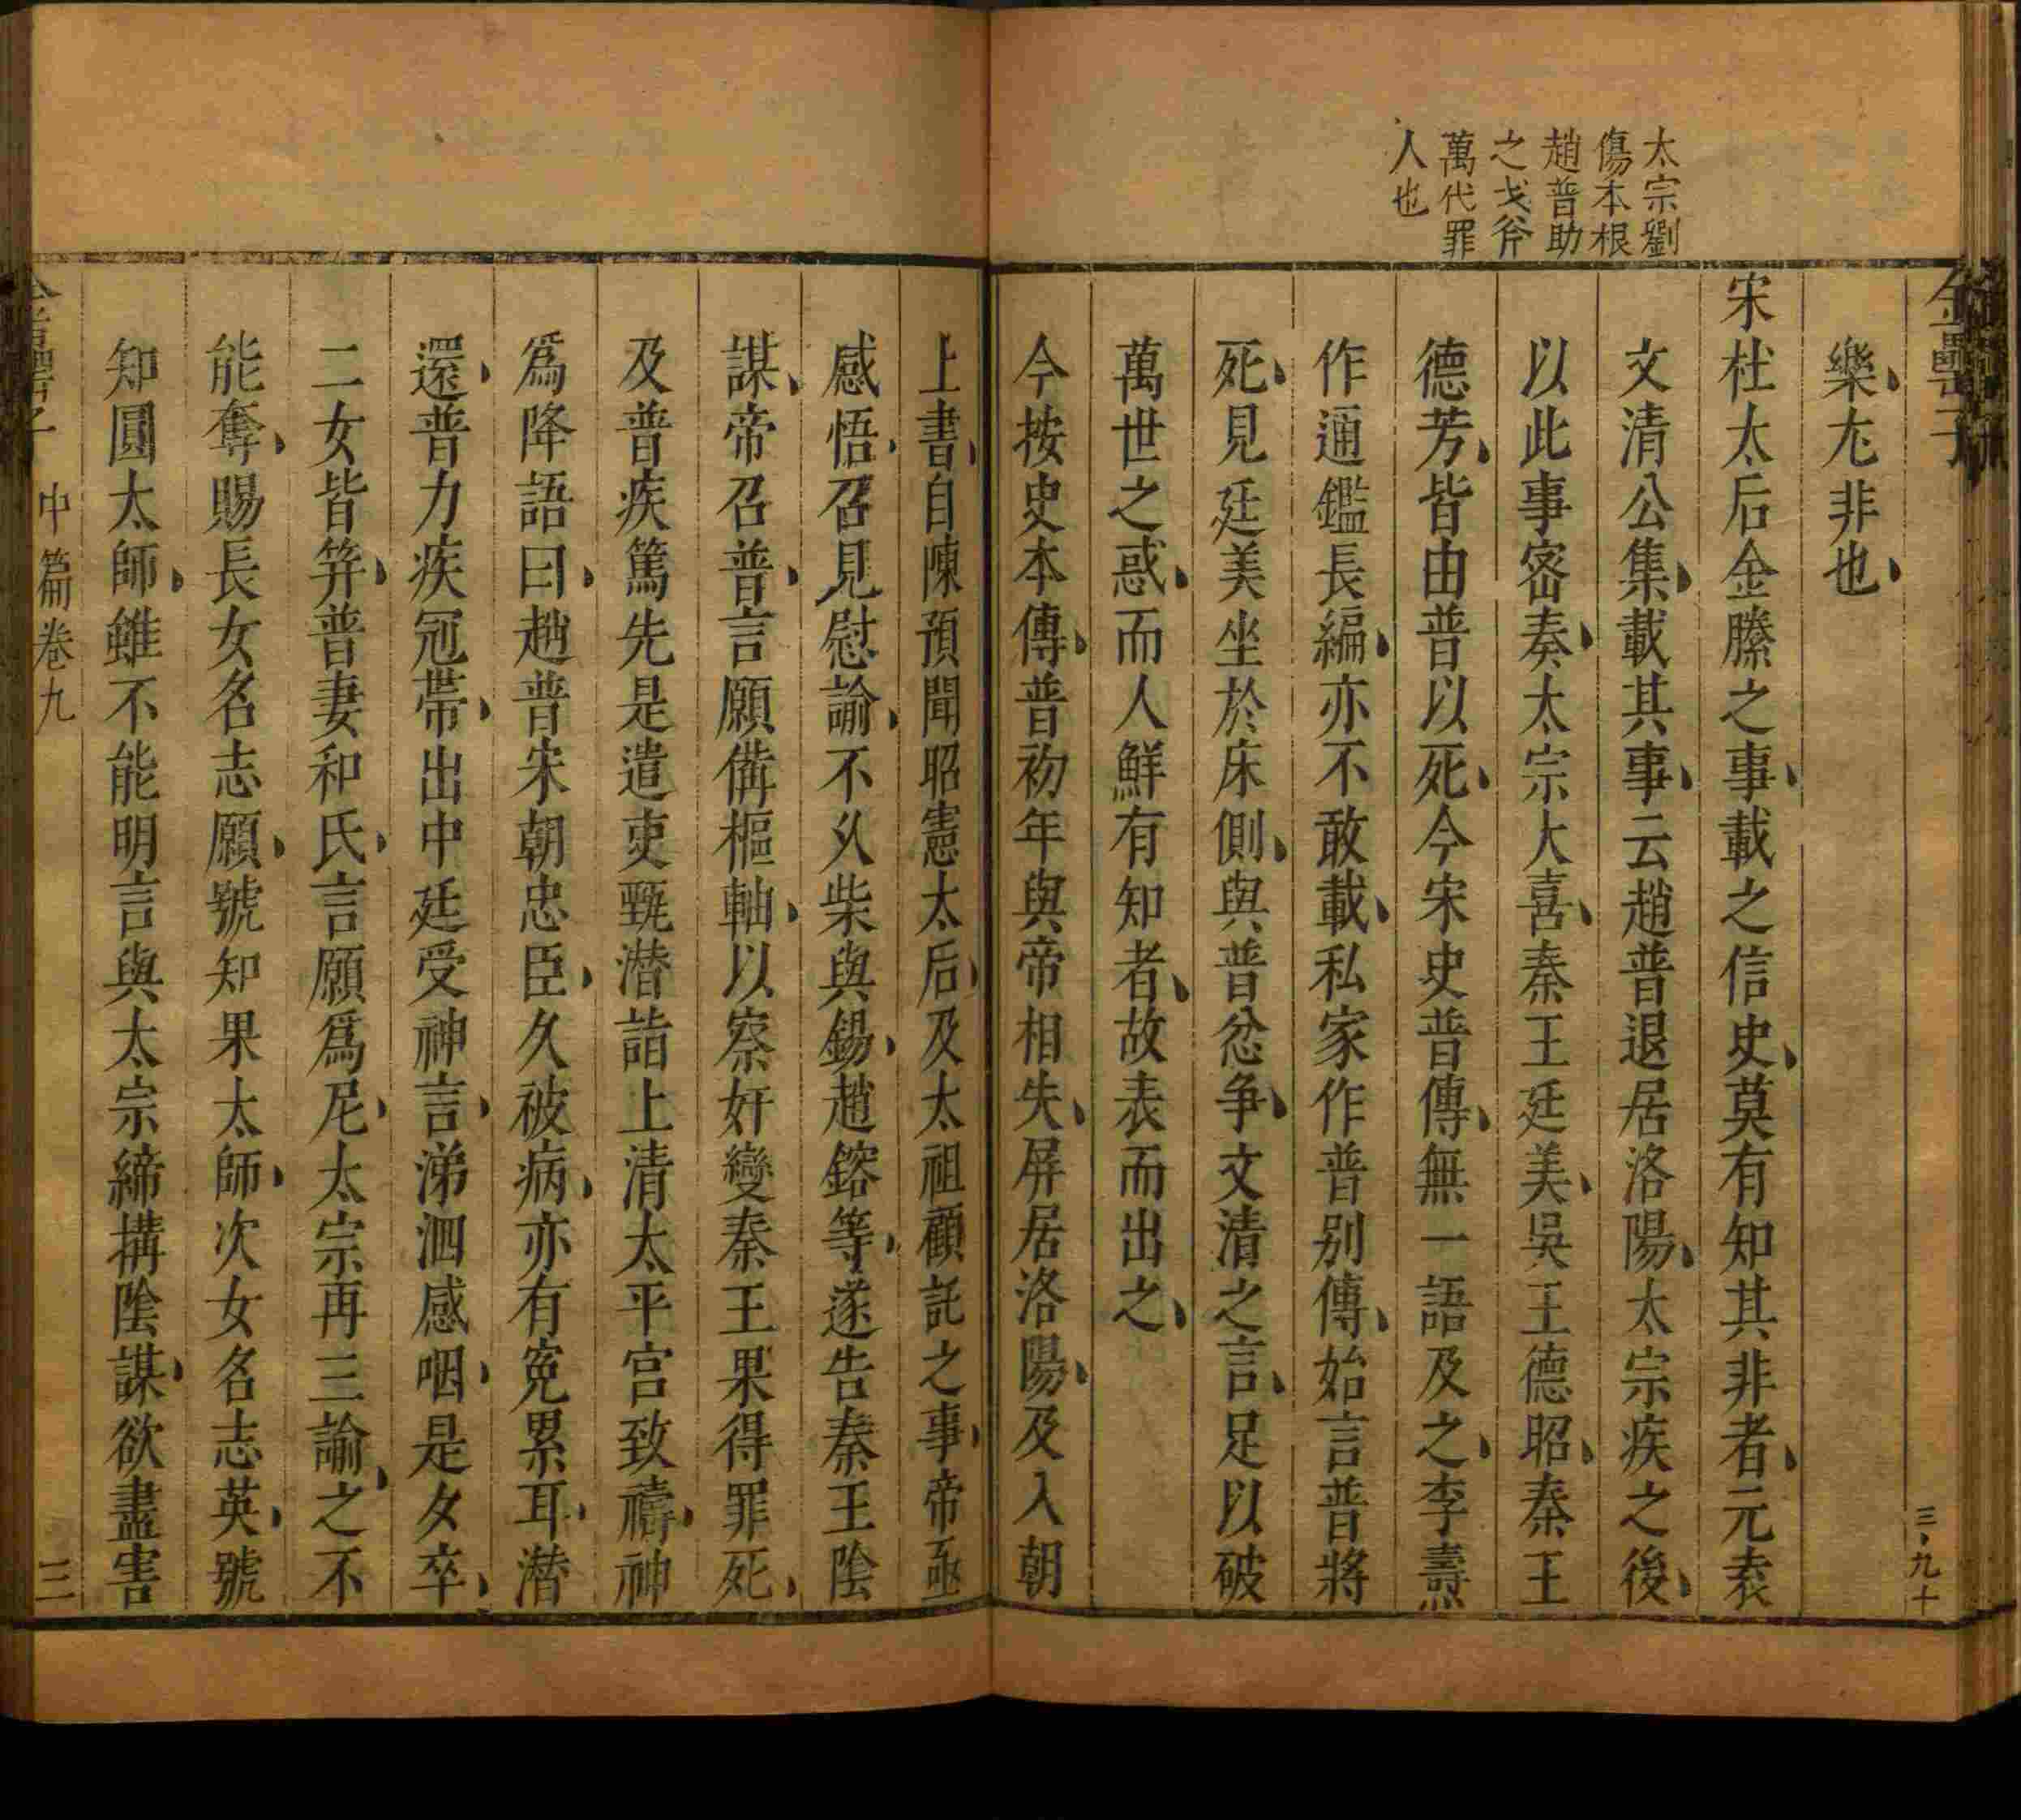 金罍子
三九十
太宗劉
傷本根
趙普助
之戈斧
萬代罪
人也
樂尢非也
宋杜太后金縢之事載之信史莫有知其非者元袁
文清公集載其事云趙普退居洛陽太宗疾之後
以此事宻奏太宗大喜秦王廷美吳王德昭秦王
德芳皆由普以死今宋史普傳無一語及之李燾
作通鑑長編亦不敢載私家作普別傳始言普將
死見廷美坐於床側與普忿争文清之言足以破
萬世之惑而人鮮有知者故表而出之
今按史本傳普初年與帝相失屏居洛陽及入朝
上書自陳預聞昭憲太后及太祖顧託之事帝亟
感悟召見慰諭不乆柴與錫趙鎔等遂告秦王陰
謀帝召普言願備樞軸以察奸變秦王果得罪死
及普疾篤先是遣吏甄潜詣上清太平宮致禱神
爲降語曰趙普宋朝忠臣久被病亦有寃累耳潜
還普力疾冠帶出中廷受神言涕泗感咽是夕卒
二女皆笄普妻和氏言願爲尼太宗再三諭之不
能奪賜長女名志願號知果太師次女名志英號
知圓太師雖不能明言與太宗締搆陰謀欲盡害
中篇卷九
三